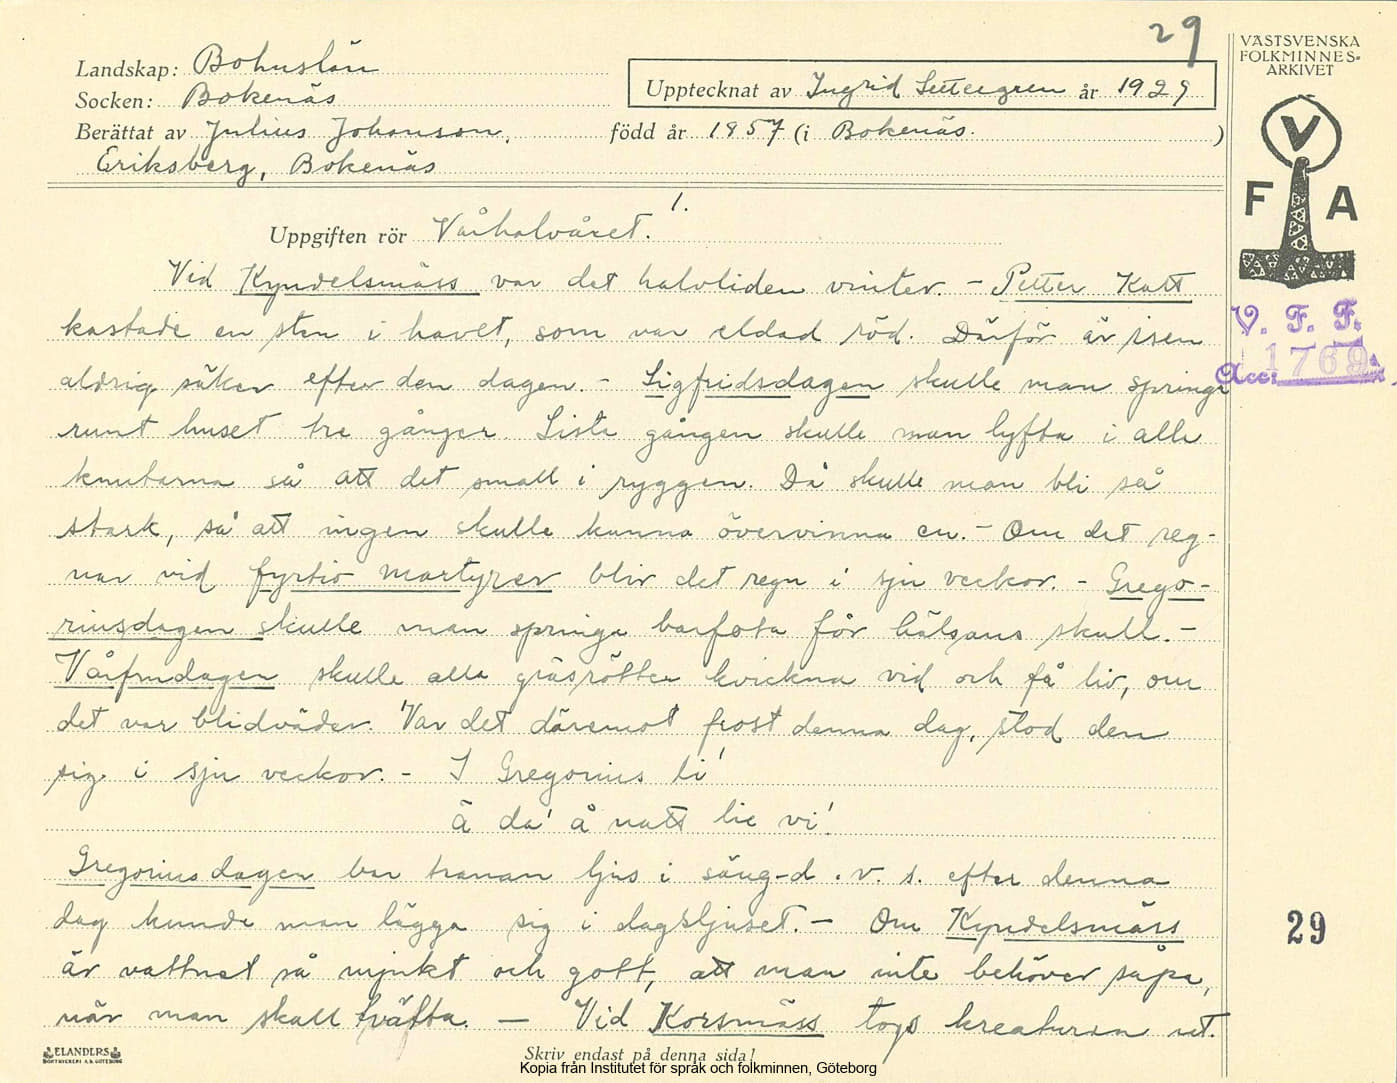 29
VÄSTSVENSKA
FOLKMINNES-
ARKIVET
Landskap: Bohuslän
Socken: Bokenäs
Upptecknat av Ingrid Settergren år 1929
Berättat av Julius Johanson, född år 1857 (i Bokenäs. )
Eriksberg, Bokenäs
V
F A
Uppgiften rör Vårhalvåret. 1.
Vid Kyndelsmäss var det halvliden vinter. - Petter Katt
kastade en sten i havet, som var eldad röd. Därför är isen
aldrig säker efter den dagen. - Sigfridsdagen skulle man springa
runt huset tre gånger. Sista gången skulle man lyfta i alla
knutarna så att det small i ryggen. Då skulle man bli så
stark, så att ingen skulle kunna övervinna en. - Om det reg-
nar vid fyrtio martyrer blir det regn i sju veckor. - Grego-
riusdagen skulle man springa barfota för hälsans skull. -
Vårfrudagen skulle alla gräsrötter kvickna vid och få liv, om
det var blidväder. Var det däremot frost denna dag, stod den
sig i sju veckor. - I Gregorius ti'
ä da' å natt lie vi'
Gregoriusdagen bar tranan ljus i säng - d.v.s. efter denna
dag kunde man lägga sig i dagsljuset. - Om Kyndelsmäss
är vattnet så mjukt och gott, att man inte behöver såpa,
när man skall tvätta. - Vid Korsmäss togs kreaturen ut.
V. F. F.
Acc: 1769.
29
ELANDERS
BOKTRYCKERI A.B. GÖTEBORG
Skriv endast på denna sida!
Kopia från Institutet för språk och folkminnen, Göteborg